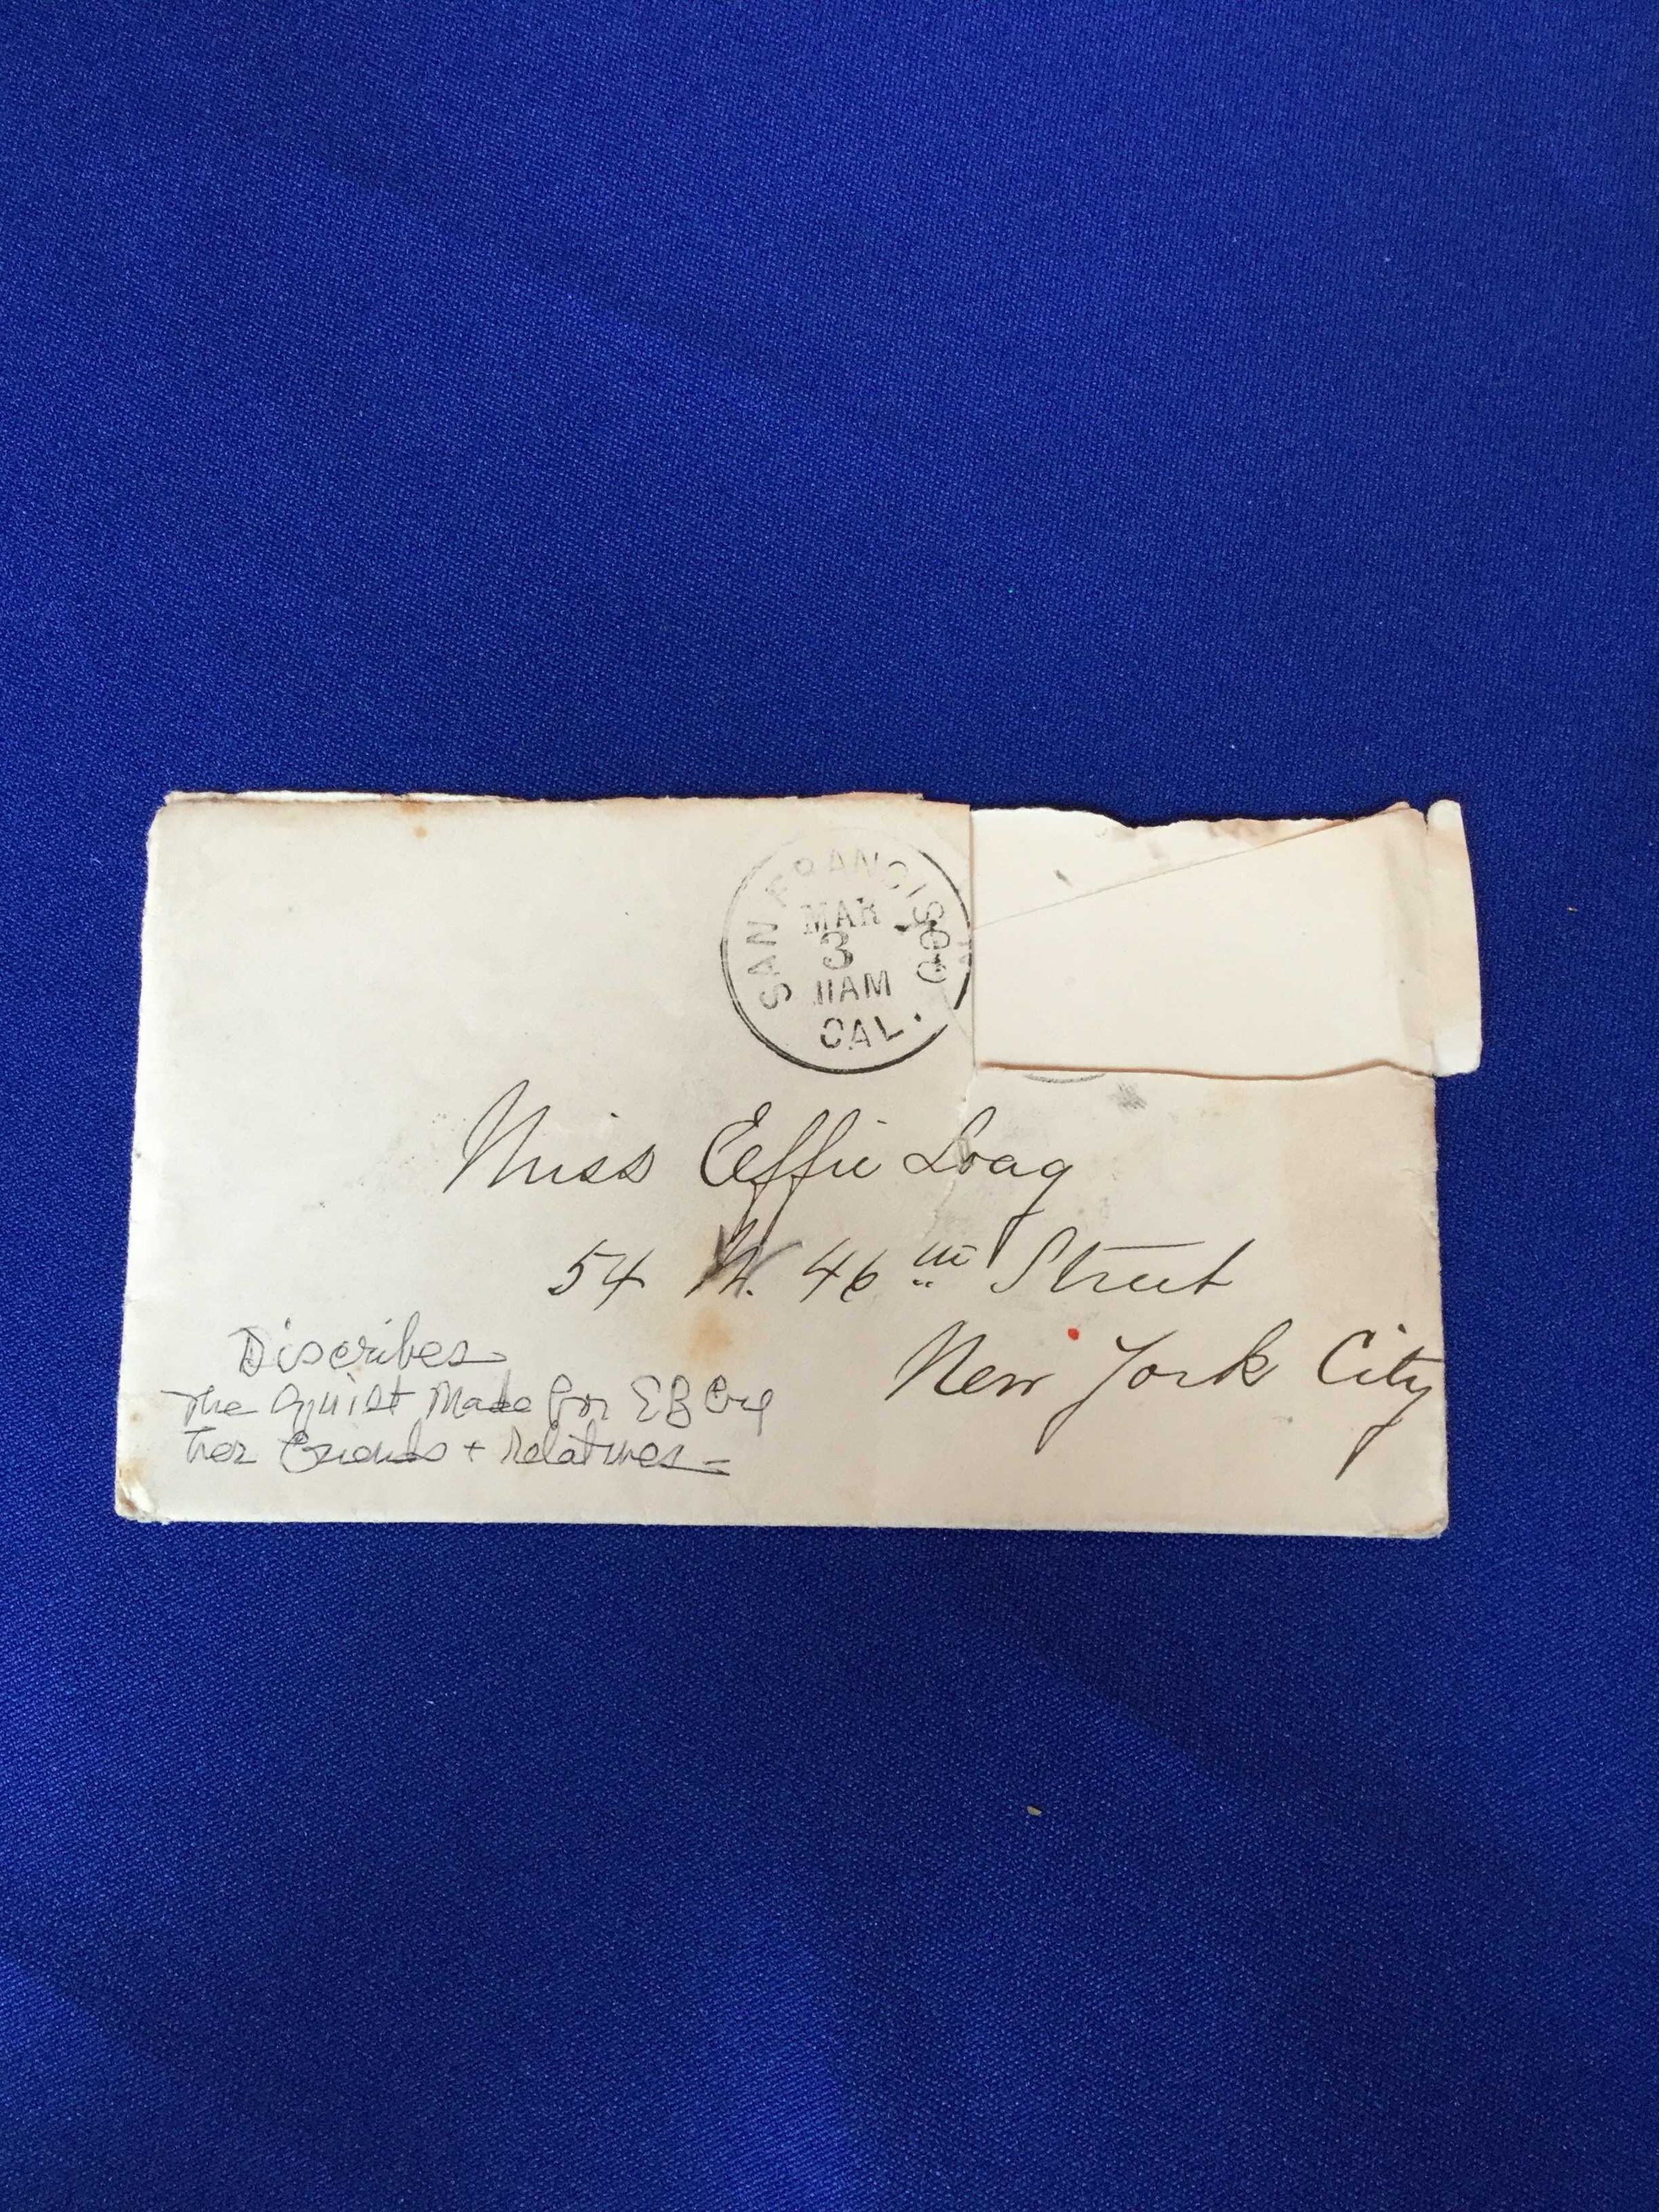 SAN FRANCISCO
MAR
3
11AM
CAL.
Miss Effie Loag
54 W. 46th Street
New York City
Discribes
The Quilt Made for EB by
her Friends + Relatives